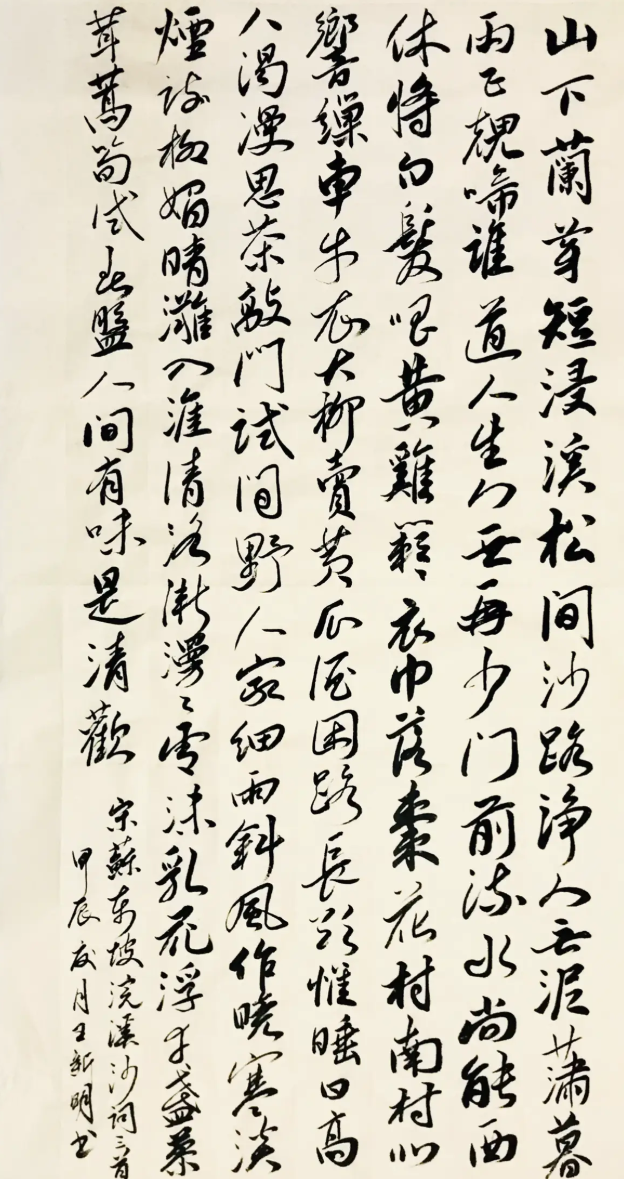 山下蘭芽短浸溪松间沙路淨無泥瀟暮
雨子規啼誰道人生無再少门前流水尚能西
休將白髮唱黄雞簌〻衣巾落棗花村南村北
響繰車牛衣古柳賣黄瓜酒困路長欲惟睡日高
人渴漫思茶敲門試问野人家细雨斜風作曉寒淡
煙疏柳媚晴灘入淮清洛漸漫〻雪沫乳花浮午盞蓼
茸蒿筍试春盤人间有味是清歡
宋蘇东坡浣溪沙词三首
甲辰夏月王新明书